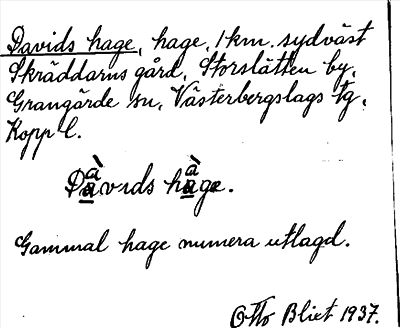 Davids hage, hage, 1 km. sydväst
Skräddarns gård, Storslätten by,
Grangärde sn, Västerbergslags tg,
Kopp l.
Dàvıds hàge.
Gammal hage numera utlagd.
Otto Blixt 1937.